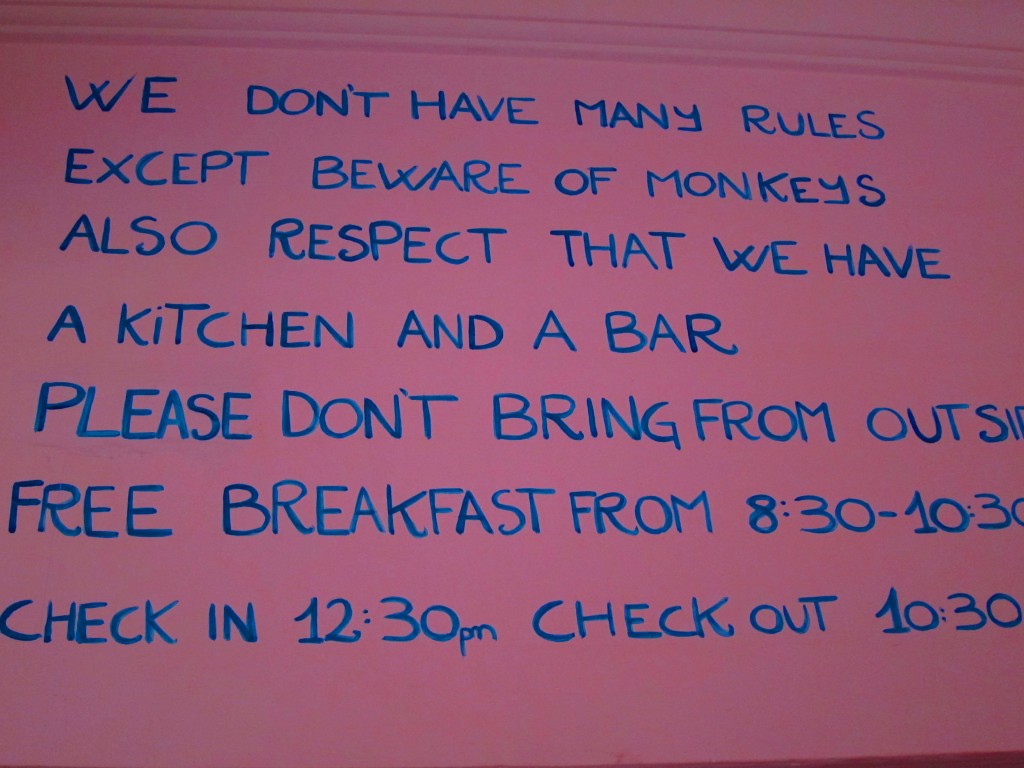 WE DON'T HAVE MANY RULES
EXCEPT BEWARE OF MONKEYS
ALSO RESPECT THAT WE HAVE
A KiTCHEN AND A BAR
PLEASE DON'T BRING FROM
FREE BREAKFAST FROM 8:30-10:30
CHECK IN 12:30pm CHECK OUT 10:30